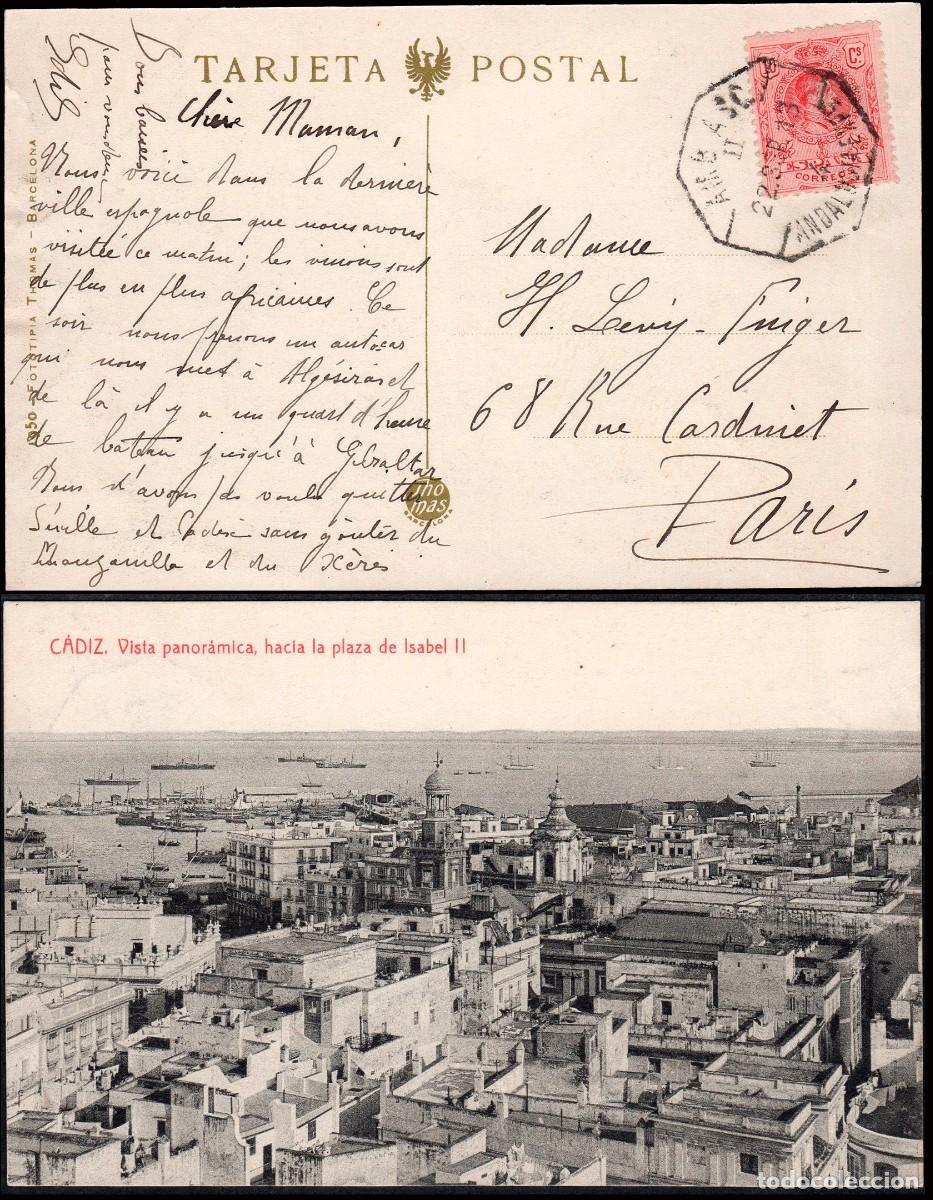 TARJETA POSTAL
Chère Maman,
Nous voici dans la dernière
ville espagnole que nous avons
visitée ce matin; les visions sont
de plus en plus africaines. Ce
soir nous prenons un autocar
qui nous met à Algésiras et
de là il y a un quart d'heure
de bateau jusqu'à Gibraltar
Nous n'avons pas voulu quitter
Séville et Cadix sans goûter du
Manzanilla et du Xérès
Bons baisers
pour vous deux
950 - FOTOTIPIA THOMAS - BARCELONA
Thomas
BARCELONA
CORREOS
AMB ASC
II
22.SEP 13
ANDALUCIA
Madame
H. Levy-
68 Rue Cardinet
Paris
CÁDIZ. Vista panorámica, hacia la plaza de Isabel II
todocoleccion